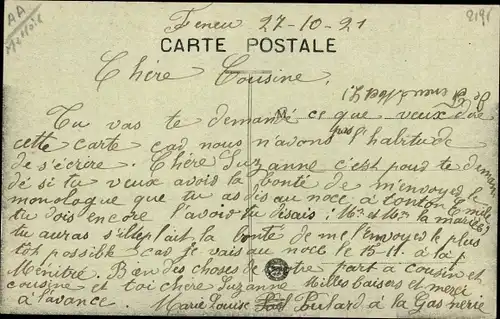 AA
2191
Feneu 27-10-21
CARTE POSTALE
Chère Cousine,
Tu vas te demandé ce que veux dire
cette carte car nous n'avons pas l'habitude
de s'écrire. Chère Suzanne c'est pour te deman
dé si tu veux avoir la bonté de m'envoyer le
monologue que tu as dis au noce à tonton Emile
tu dois encore l'avoir tu disais : Mr et Mme la mariée
tu auras s'ilteplait la bonté de me l'envoyer le plus
tôt possible car je vais au noce le 15-11. à la
Ménitré. Bien des choses de notre part à cousin et
cousine et toi chère Suzanne Milles baisers et merci
à l'avance. Marie Louise Poulard à la Gasnerie